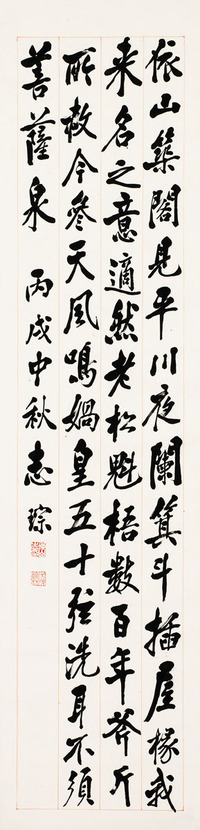 依山築閣見平川夜闌箕斗插屋椽我
来名之意適然老松魁梧數百年斧斤
所赦今參天風鳴媧皇五十弦洗耳不須
菩薩泉 丙戌中秋志琮